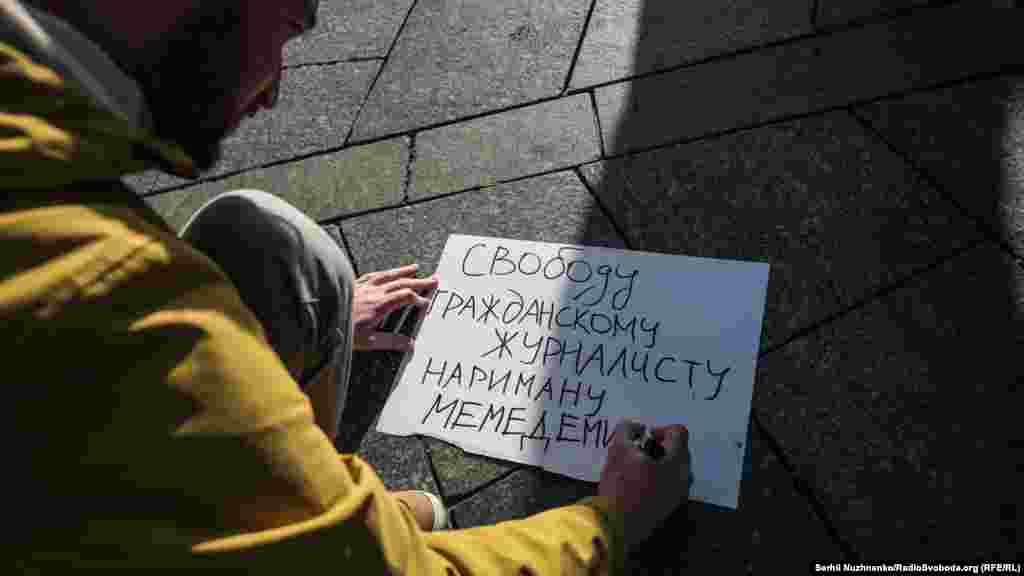 СВОБОДУ
ГРАЖДАНСКОМУ
ЖУРНАЛИСТУ
НАРИМАНУ
МЕМЕДЕМИ
Serhii Nuzhnenko/RadioSvoboda.org (RFE/RL)